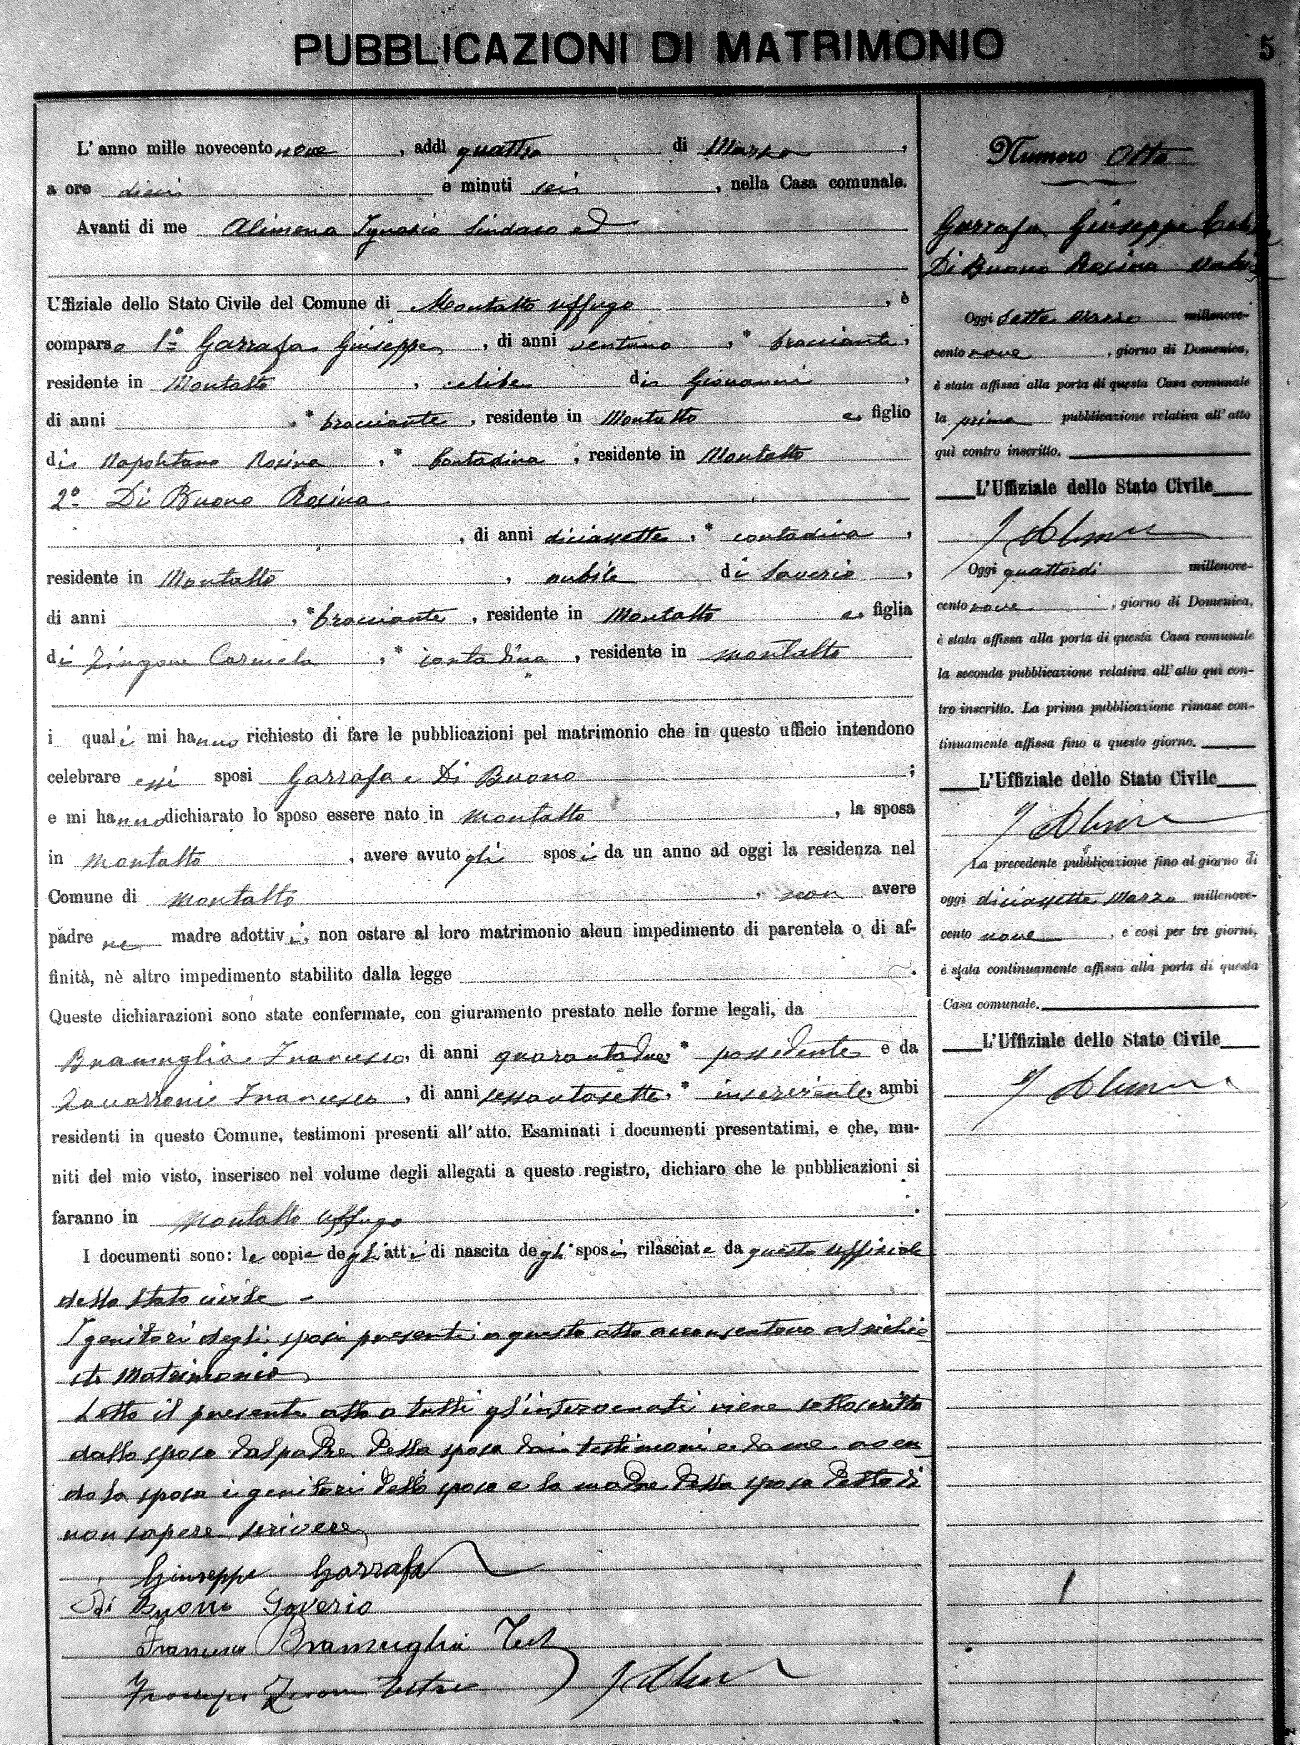 PUBBLICAZIONI DI MATRIMONIO
5
L'anno mille novecento nove, addì quattro di Marzo,
a ore dieci e minuti sei, nella Casa comunale.
Avanti di me Alimena Ignazio Sindaco ed
Uffiziale dello Stato Civile del Comune di Montalto Uffugo, è
comparso 1º Garrafa Giuseppe, di anni ventuno, * bracciante,
residente in Montalto, celibe di Giovanni,
di anni , * bracciante, residente in Montalto e figlio
di Napolitano Rosina, * Contadina, residente in Montalto
2º Di Buono Rosina
, di anni diciassette, * contadina,
residente in Montalto, nubile di Saverio,
di anni , * bracciante, residente in Montalto e figlia
di Zingone Carmela, * contadina, residente in Montalto
i quali mi hanno richiesto di fare le pubblicazioni pel matrimonio che in questo ufficio intendono
celebrare essi sposi Garrafa e Di Buono ;
e mi hanno dichiarato lo sposo essere nato in Montalto, la sposa
in Montalto, avere avuto gli sposi da un anno ad oggi la residenza nel
Comune di Montalto, non avere
padre ne madre adottivi, non ostare al loro matrimonio alcun impedimento di parentela o di af-
finità, nè altro impedimento stabilito dalla legge .
Queste dichiarazioni sono state confermate, con giuramento prestato nelle forme legali, da
Bramuglia Francesco, di anni quarantadue, * possidente e da
Francesco, di anni sessantasette, * inserviente, ambi
residenti in questo Comune, testimoni presenti all'atto. Esaminati i documenti presentatimi, e che, mu-
niti del mio visto, inserisco nel volume degli allegati a questo registro, dichiaro che le pubblicazioni si
faranno in Montalto Uffugo .
I documenti sono: le copie degli atti di nascita degli sposi rilasciate da questo uffiziale
dello stato civile -
I genitori degli sposi presenti a questo atto acconsentono al richie
sto Matrimonio
Letto il presente atto a tutti gl'intervenuti viene sottoscritto
dallo sposo dal padre della sposa dai testimoni e da me aven
do la sposa i genitori dello sposo e la madre della sposa detto di
non sapere scrivere
Giuseppe Garrafa
Di Buono Saverio
Francesco Bramuglia Test
Numero Otto
Garrafa Giuseppe Celibe
Di Buono Rosina Nubile
Oggi Sette Marzo millenove-
cento nove, giorno di Domenica,
è stata affissa alla porta di questa Casa comunale
la prima pubblicazione relativa all'atto
quì contro inscritto.
L'Uffiziale dello Stato Civile
Oggi quattordi millenove-
cento nove, giorno di Domenica,
è stata affissa alla porta di questa Casa comunale
la seconda pubblicazione relativa all'atto quì con-
tro inscritto. La prima pubblicazione rimase con-
tinuamente affissa fino a questo giorno.
L'Uffiziale dello Stato Civile
La precedente pubblicazione fino al giorno di
oggi diciassette Marzo millenove-
cento nove, e così per tre giorni,
è stata continuamente affissa alla porta di questa
Casa comunale.
L'Uffiziale dello Stato Civile